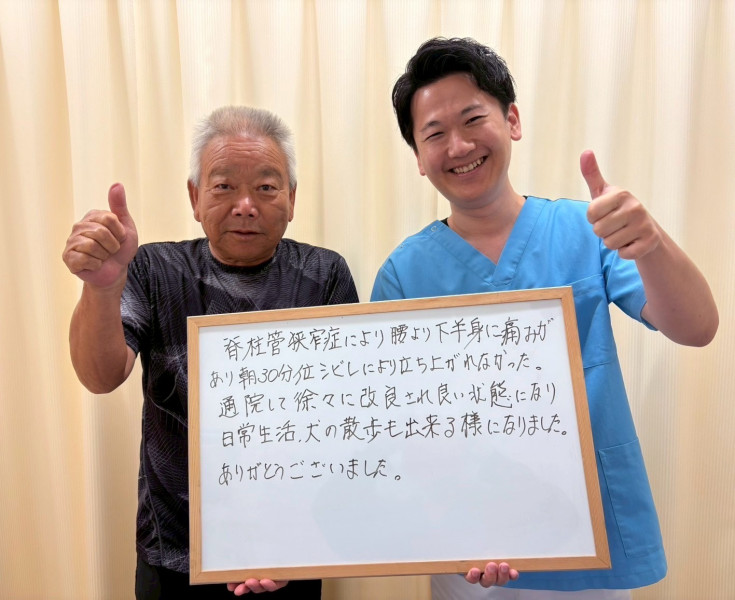 脊柱管狭窄症により腰より下半身に痛みが
あり朝30分位シビレにより立ち上がれなかった。
通院して徐々に改良され良い状態になり
日常生活、犬の散歩も出来る様になりました。
ありがとうございました。